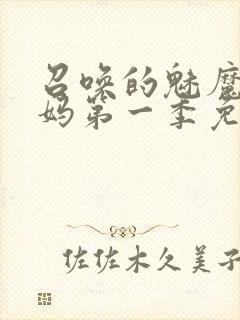 召唤的魅魔
妈第一季免
佐佐木久美子